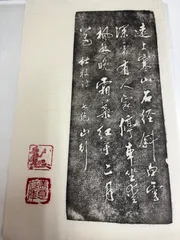 远上寒山石径斜白雲
深處有人家停車坐愛
枫林晚霜葉红于二月
花 杜牧 山行